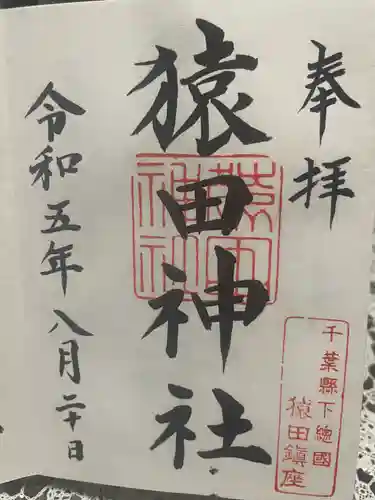 奉拝
猿田神社
令和五年八月二十日
猿田神社
千葉縣下總國
猿田鎮座